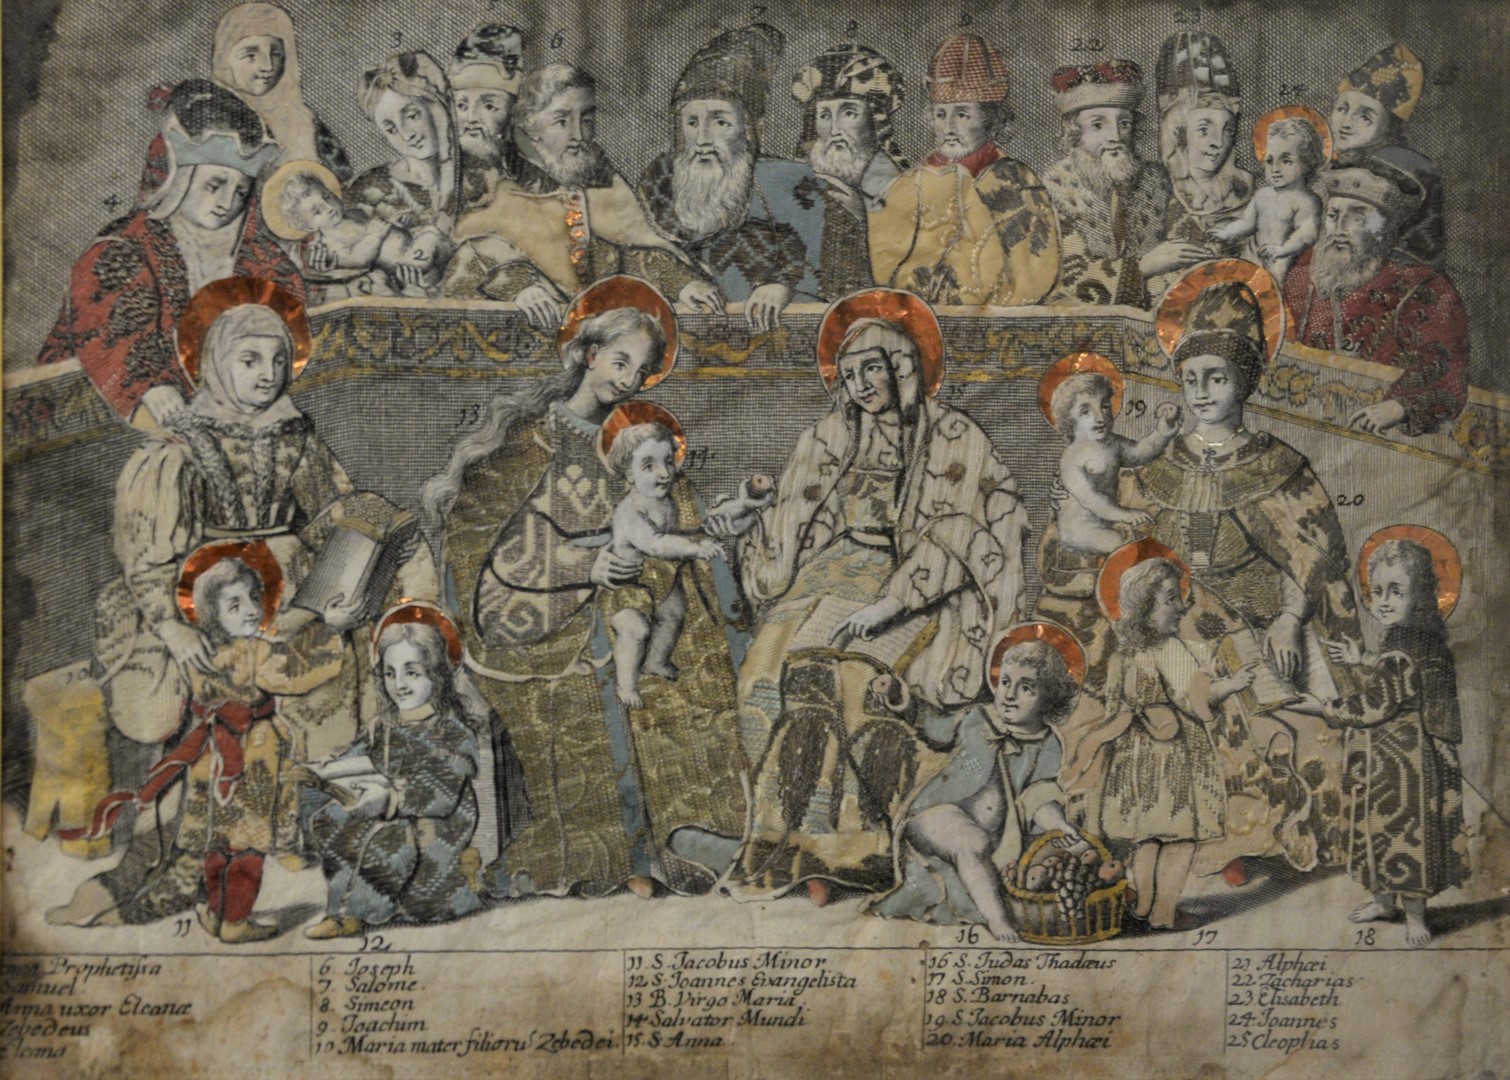 5
3
6
7
8
9
22
23
24
25
4
2
21
13
14
15
19
20
10
11
12
16
17
18
Prophetissa
Samuel
Anna uxor Elcanæ
Zebedeus
Elcana
6 Joseph
7. Salome.
8. Simeon
9. Joachim
10. Maria mater filioru Zebedei.
11. S. Jacobus Minor
12 S. Joannes Evangelista
13 B. Virgo Maria.
14 Salvator Mundi
15. S Anna
16 S. Judas Thadæus
17 S. Simon.
18 S. Barnabas
19. S. Jacobus Minor
20. Maria Alphæi
21 Alphæi
22 Zacharias
23 Elisabeth
24 Joannes
25 Cleophas